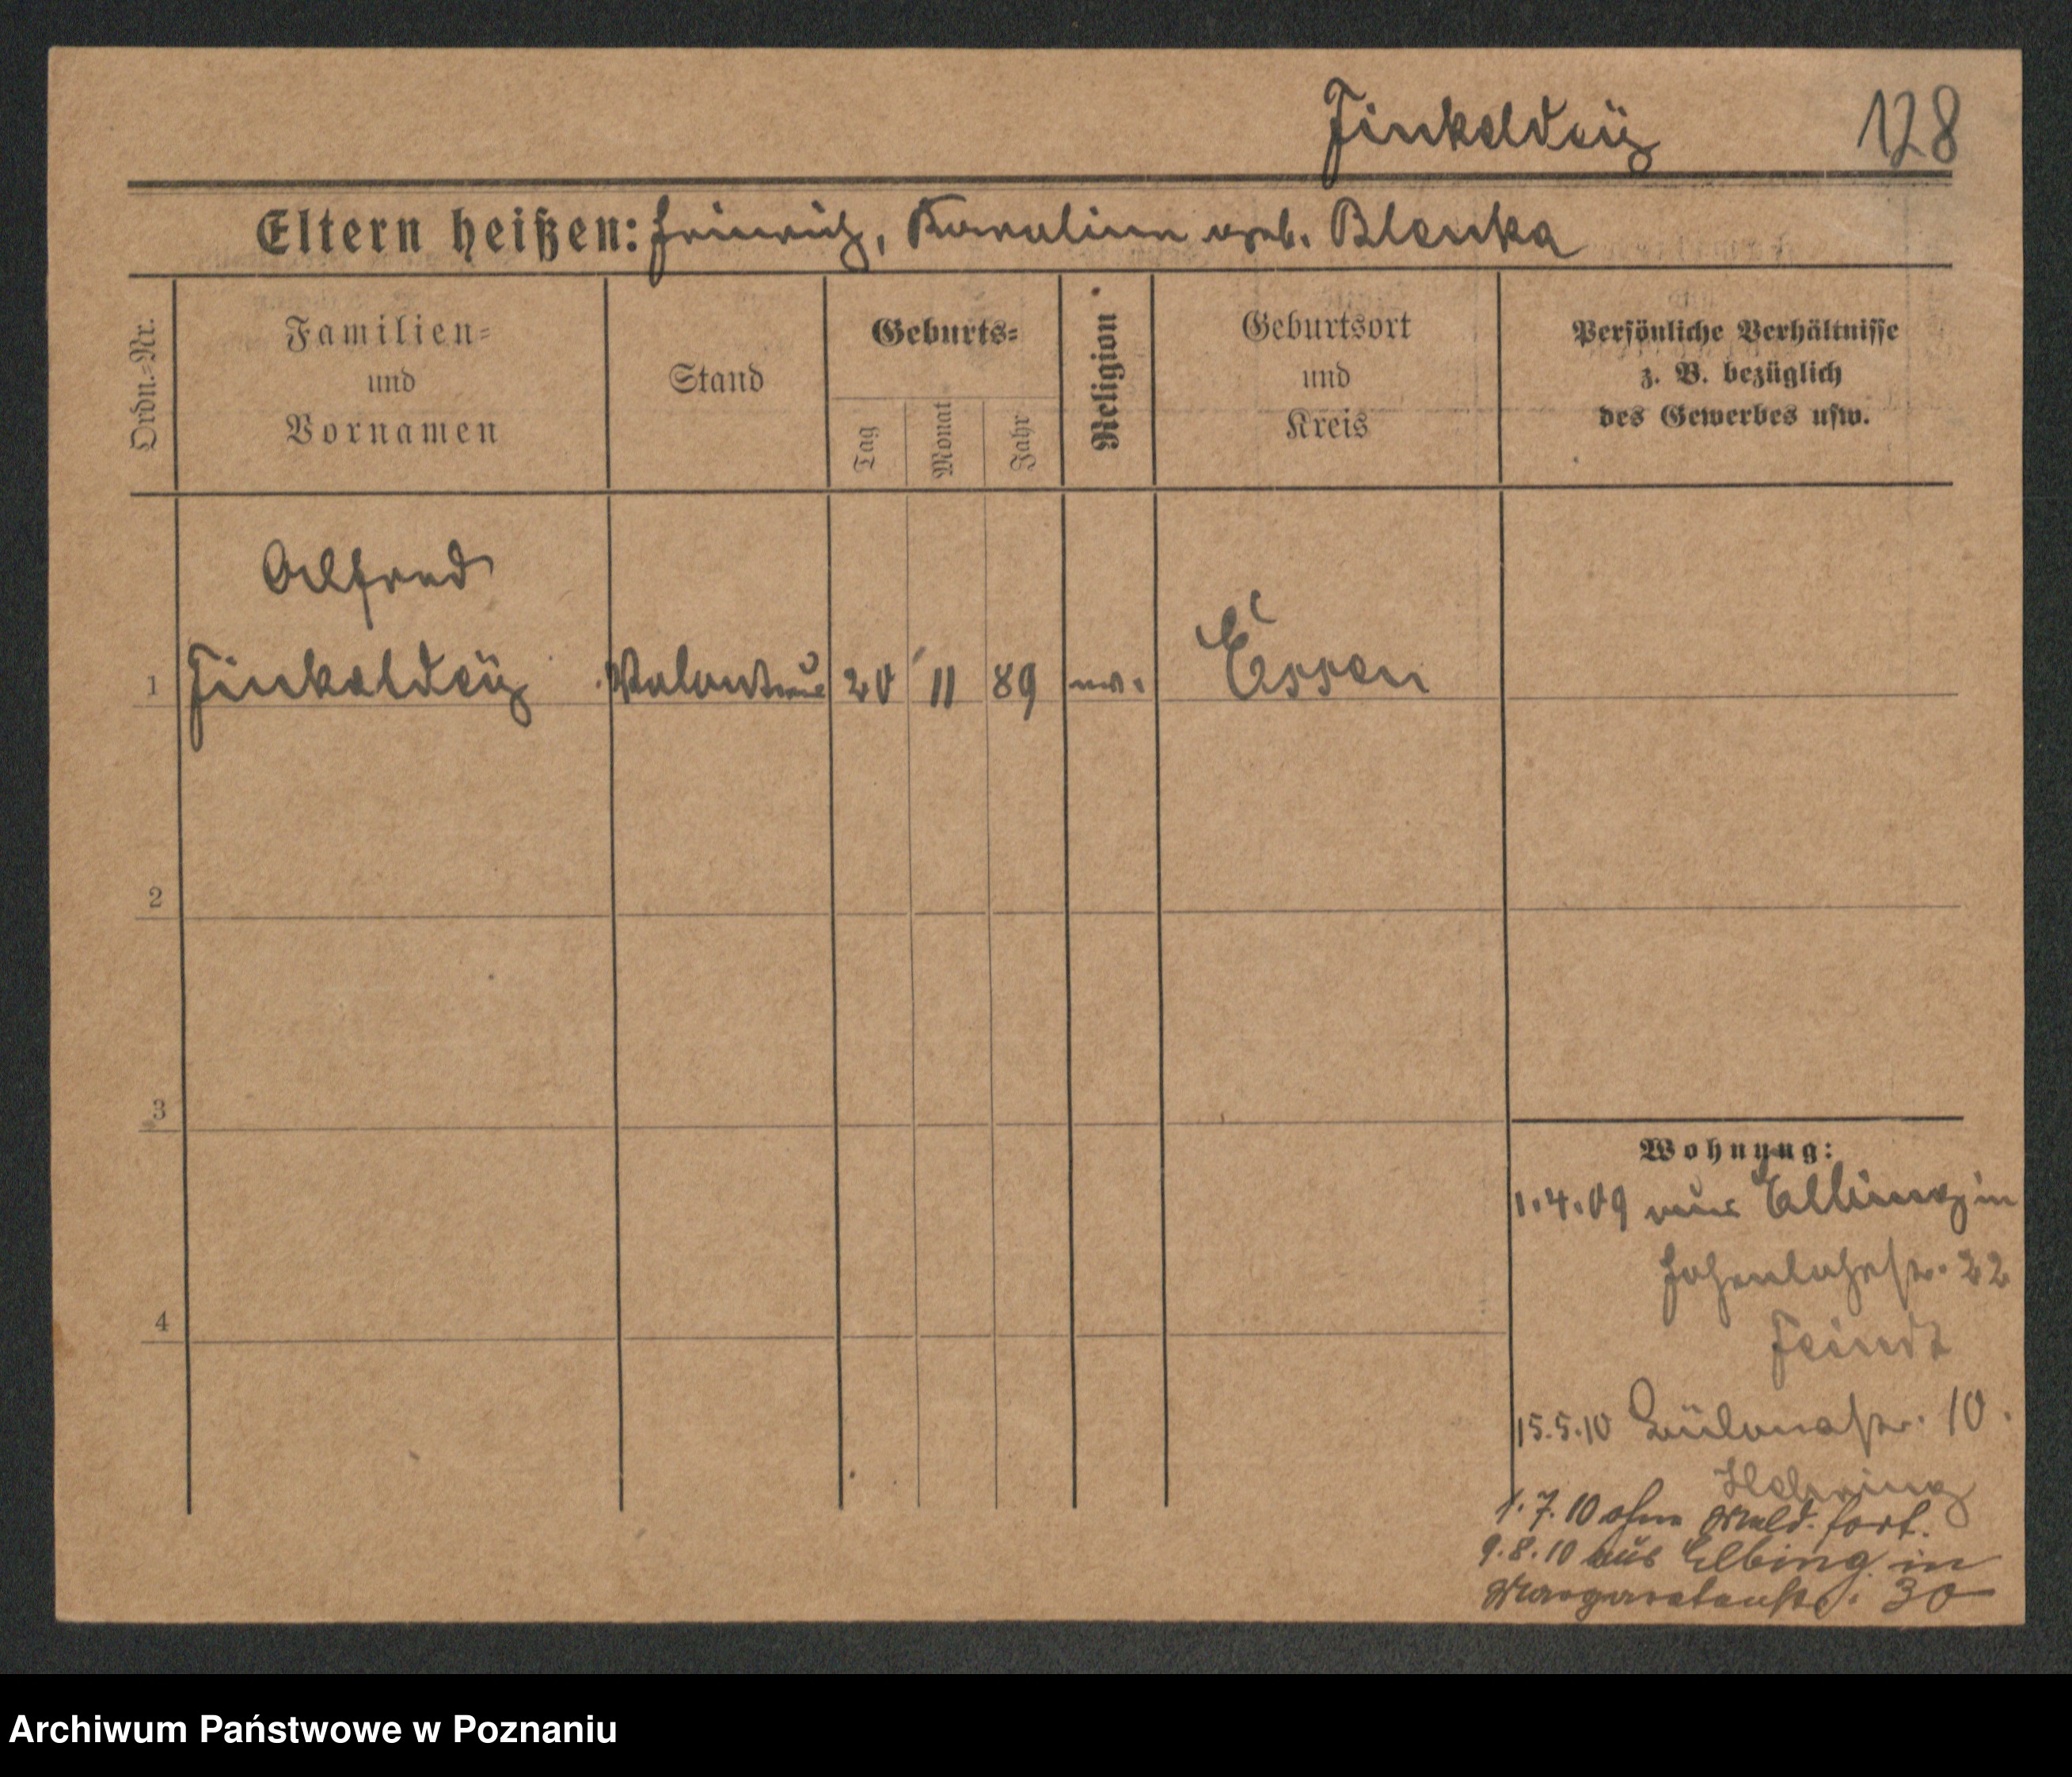 Finkeldeÿ 128
Eltern heißen: Heinrich, Karoline geb. Blenka
Ordn.=Nr.
Familien=
und
Vornamen
Stand
Geburts=
Tag
Monat
Jahr
Religion
Geburtsort
und
Kreis
Persönliche Verhältnisse
z. B. bezüglich
des Gewerbes usw.
Alfred
1 Finkeldeÿ Volontär 20 11 89 ev. Essen
2
3
4
Wohnung:
1.4.09 aus in
Hohenlohestr. 22
Feindt
15.5.10 10.
1.7.10 ohne Meld. fort.
9.8.10 aus Elbing in
Margaretenstr. 30
Archiwum Państwowe w Poznaniu